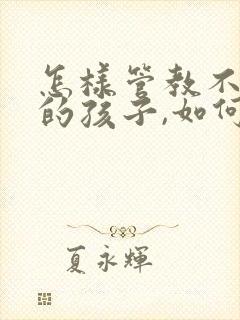 怎样管教不
的孩子,如何
夏永輝